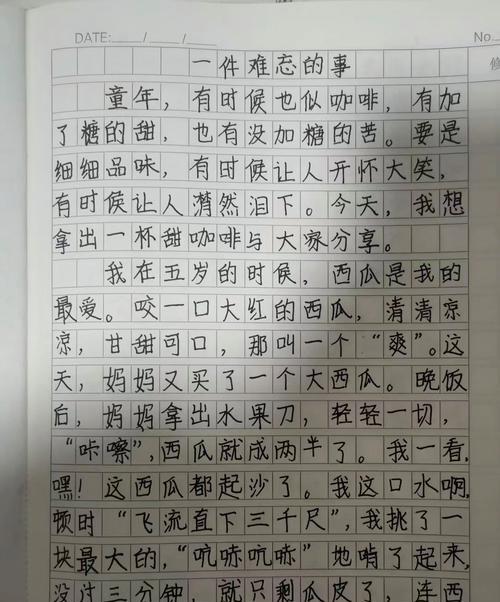 DATE: / /
No.
修
一件难忘的事
童年，有时候也似咖啡，有加
了糖的甜，也有没加糖的苦。要是
细细品味，有时候让人开怀大笑，
有时候让人潸然泪下。今天，我想
拿出一杯甜咖啡与大家分享。
我在五岁的时候，西瓜是我的
最爱。咬一口大红的西瓜，清清凉
凉，甘甜可口，那叫一个“爽”。这
天，妈妈又买了一个大西瓜。晚饭
后，妈妈拿出水果刀，轻轻一切，
“咔嚓”，西瓜就成两半了。我一看，
嘿！这西瓜都起沙了。我这口水啊，
顿时“飞流直下三千尺”，我挑了一
块最大的，“吭哧吭哧”地啃了起来，
没过三分钟，就只剩瓜皮了，连西